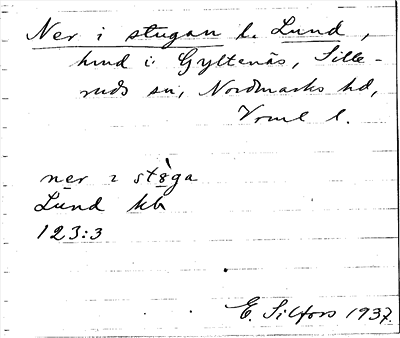 Ner i stugan b. Lund,
hmd i Gyltenäs, Sille-
ruds sn, Nordmarks hd,
Vrml l.
ner i stö̀ga
Lund kb
123:3
E. Silfors 1937.